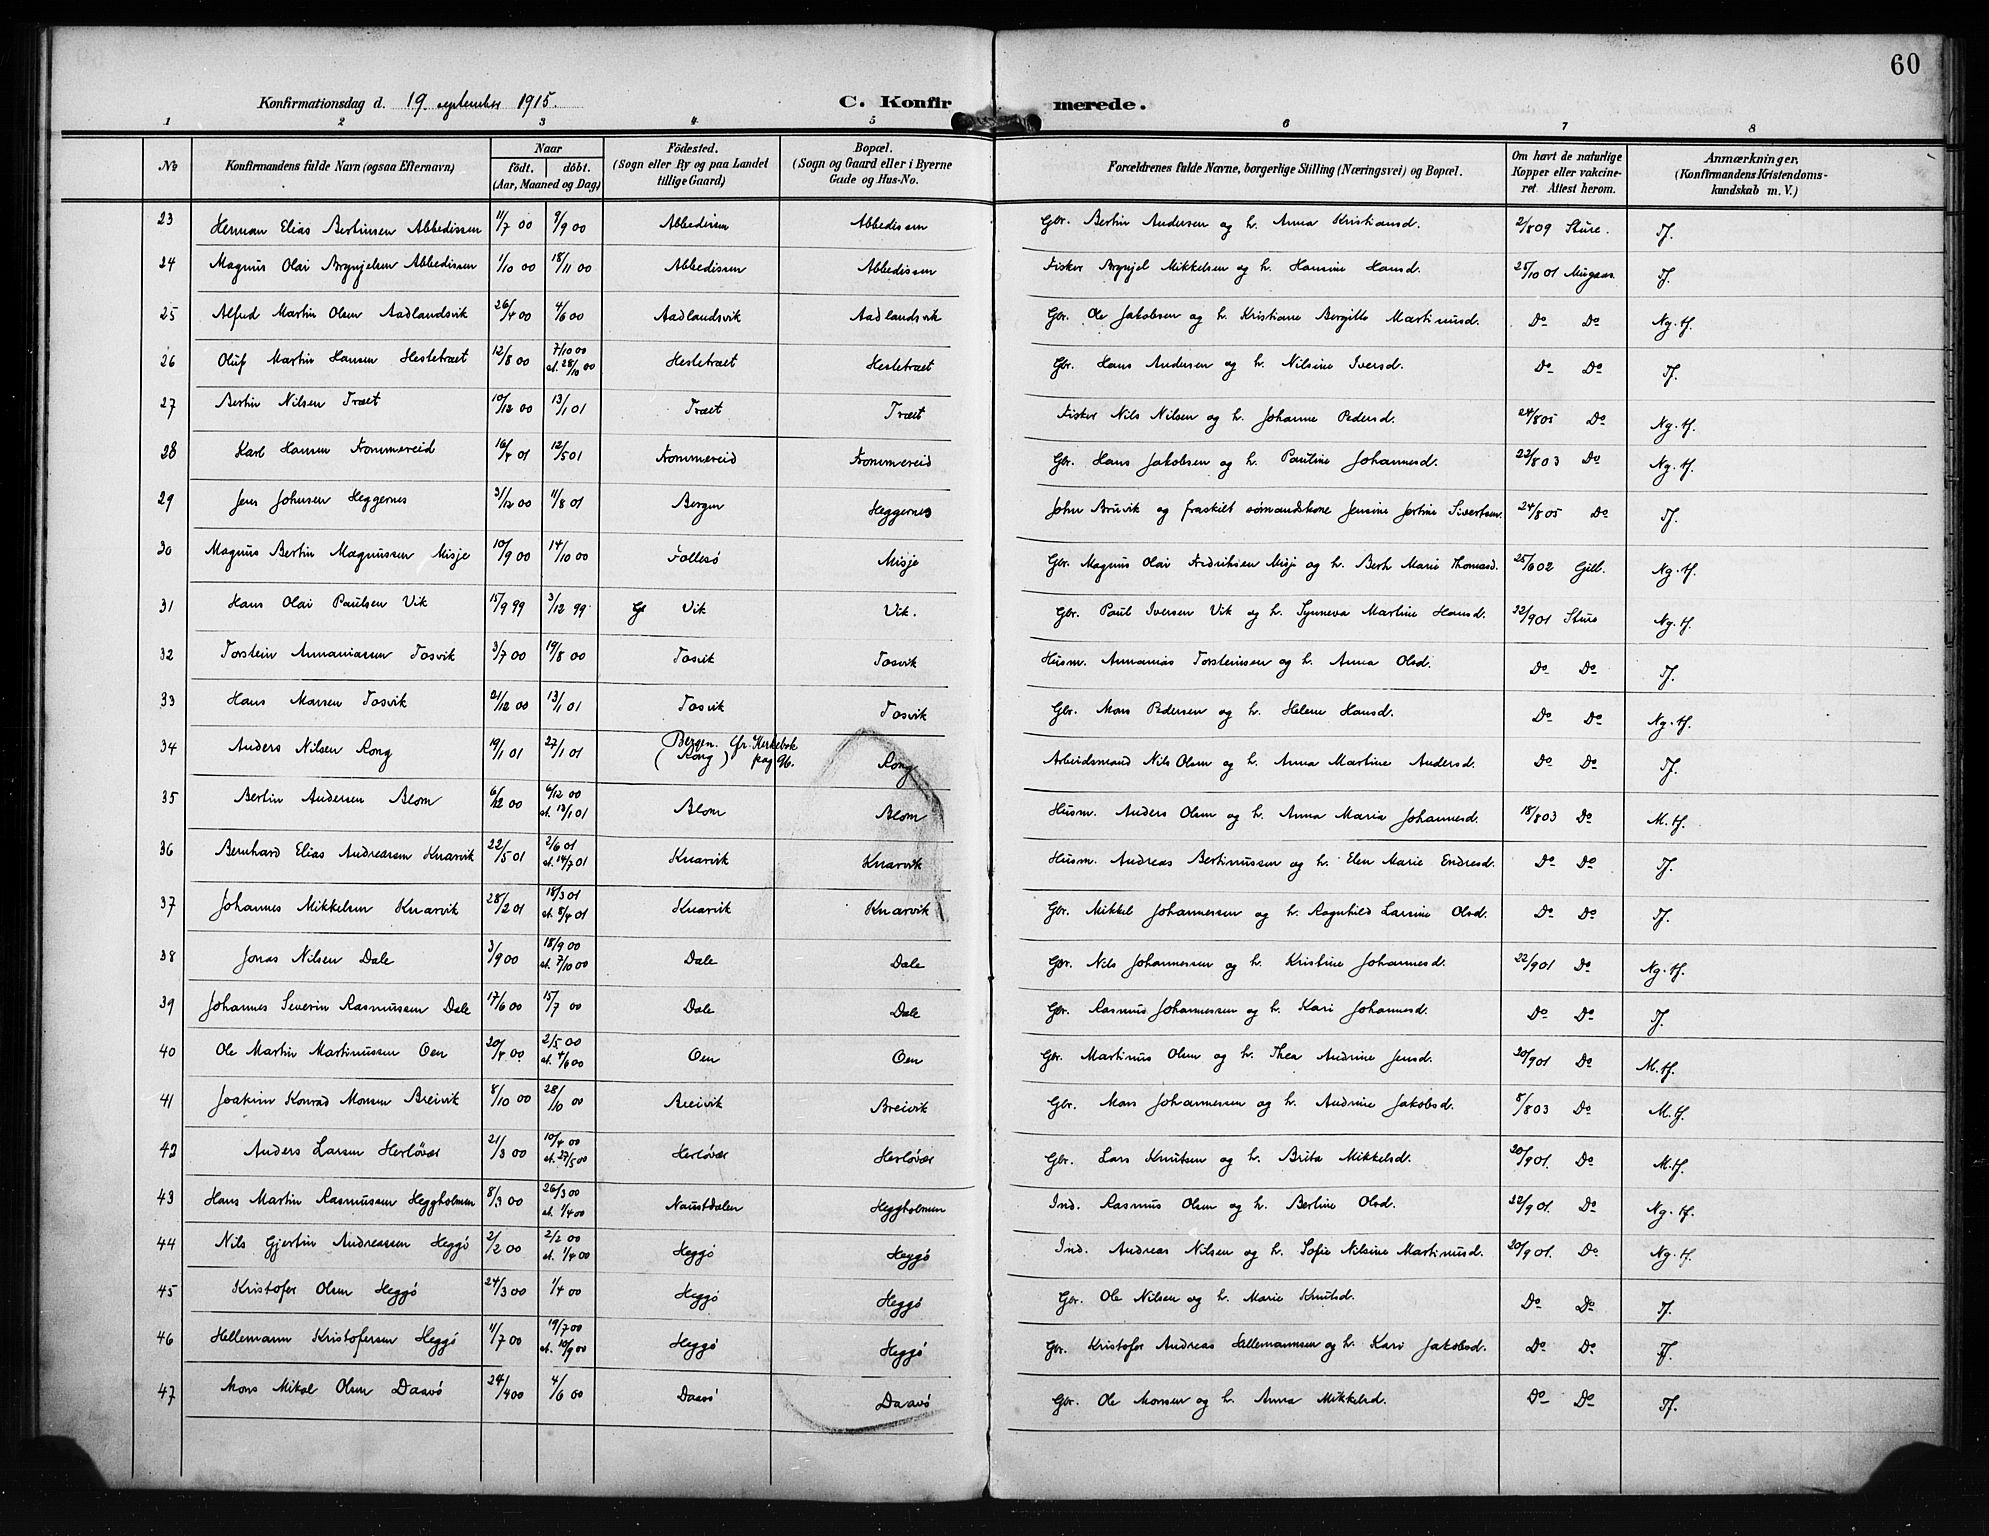 60
Konfirmationsdag d. 19. september 1915. C. Konfirmerede.
1 2 3 4 5 6 7 8
No Konfirmandens fulde Navn (ogsaa Efternavn) Naar født. døbt. (Aar, Maaned og Dag) Fødested. (Sogn eller By og paa Landet tillige Gaard) Bopæl. (Sogn og Gaard eller i Byerne Gade og Hus-No. Forældrenes fulde Navne, borgerlige Stilling (Næringsvei) og Bopæl. Om havt de naturlige Kopper eller vakcineret. Attest herom. Anmærkninger. (Konfirmandens Kristendomskundskab m. V.)
23 Herman Elias Bertinsen Abbedissen 11/7 00 9/9 00 Abbedissen Abbedissen Gbr. Bertin Andersen og h. Anna Kristiansd. 2/8 09 Sture. Tf.
24 Magnus Olai Brynjelsen Abbedissen 1/10 00 18/11 00 Abbedissen Abbedissen Fisker Brynjel Mikkelsen og h. Hansine Hansd. 25/10 01 Mugaas Tf.
25 Alfred Martin Olsen Aadlandsvik 26/4 00 4/6 00 Aadlandsvik Aadlandsvik Gbr. Ole Jakobsen og h. Kristiane Bergitte Martinusd. Do Do Ng. tf.
26 Oluf Martin Hansen Hestetræet 12/8 00 7/10 00 st. 28/10 00 Hestetræet Hestetræet Gbr. Hans Andersen og h. Nilsine Iversd. Do Do Tf.
27 Bertin Nilsen Træet 10/12 00 13/1 01 Træet Træet Fisker Nils Nilsen og h. Johanne Pedersd. 24/8 05 Do Ng. tf.
28 Karl Hansen Frommereid 16/4 01 12/5 01 Frommereid Frommereid Gbr. Hans Jakobsen og h. Pauline Johannesd. 22/8 03 Do Ng. tf.
29 Jens Johnsen Heggernes 31/12 00 11/8 01 Bergen Heggernes John Bruvik og fraskilt sømandskone Jensine Jortine Sivertsen. 24/8 05 Do Tf.
30 Magnus Bertin Magnussen Misje 10/9 00 14/10 00 Follesø Misje Gbr. Magnus Olai Fredriksen Misje og h. Berte Marie Thomasd. 25/6 02 Gjell. Ng. tf.
31 Hans Olai Paulsen Vik 15/9 99 3/12 99 Vik Vik. Gbr. Paul Iversen Vik og h. Synneva Martine Hansd. 22/9 01 Sture Ng. tf.
32 Torstein Annaniassen Tosvik 3/7 00 19/8 00 Tosvik Tosvik Husm. Annanias Torsteinsen og h. Anna Olsd. Do Do Tf.
33 Hans Monsen Tosvik 21/12 00 13/1 01 Tosvik Tosvik Gbr. Mons Pedersen og h. Helene Hansd. Do Do Ng. tf.
34 Anders Nilsen Rong 19/1 01 27/1 01 Bergen. Cfr. Kirkebok (Rong) pag 96. Rong Arbeidsmand Nils Olsen og h. Anna Martine Andersd. Do Do Tf.
35 Bertin Andersen Blom 6/12 00 6/12 00 st. 13/1 01 Blom Blom Husm. Anders Olsen og h. Anna Maria Johannesd. 18/8 03 Do M. tf.
36 Bernhard Elias Andreassen Knarvik 22/5 01 2/6 01 st. 14/7 01 Knarvik Knarvik Husm. Andreas Bertinussen og h. Elen Marie Endresd. Do Do Tf.
37 Johannes Mikkelsen Knarvik 28/2 01 18/3 01 st. 8/4 01 Knarvik Knarvik Gbr. Mikkel Johannessen og h. Ragnhild Larsine Olsd. Do Do Tf.
38 Jonas Nilsen Dale 3/9 00 18/9 00 st. 7/10 00 Dale Dale Gbr. Nils Johannessen og h. Kristine Johannesd. 22/9 01 Do Ng. tf.
39 Johannes Severin Rasmussen Dale 17/6 00 15/7 00 Dale Dale Gbr. Rasmus Johannessen og h. Kari Johannesd. Do Do Tf.
40 Ole Martin Martinussen Oen 20/4 00 2/5 00 st. 4/6 00 Oen Oen Gbr. Martinus Olsen og h. Thea Andrine Jensd. 20/9 01 Do M. tf.
41 Joakim Konrad Monsen Breivik 8/10 00 28/10 00 Breivik Breivik Gbr. Mons Johannessen og h. Andrine Jakobsd. 8/8 03 Do M. tf.
42 Anders Larsen Herløvær 21/3 00 10/4 00 st. 27/5 00 Herløvær Herløvær Gbr. Lars Knutsen og h. Brita Mikkelsd. 20/9 01. Do M. tf.
43 Hans Martin Rasmussen Heggholmen 8/3 00 26/3 00 st. 1/4 00 Naustdalen Heggholmen Ind. Rasmus Olsen og h. Bertine Olsd. 22/9 01. Do Ng. tf.
44 Nils Gjertin Andreassen Heggø 2/2 00 2/2 00 st. 1/4 00 Heggø Heggø Ind. Andreas Nilsen og h. Sofie Nilsine Martinusd. 20/9 01. Do Ng. tf.
45 Kristofer Olsen Heggø 24/3 00 1/4 00 Heggø Heggø Gbr. Ole Nilsen og h. Marie Knutsd. Do Do Tf.
46 Hellemann Kristofersen Heggø 11/7 00 19/7 00 st. 10/9 00 Heggø Heggø Gbr. Kristofer Andreas Hellemannsen og h. Kari Jakobsd. Do Do Tf.
47 Mons Mikal Olsen Daavø 24/4 00 4/6 00 Daavø Daavø Gbr. Ole Monsen og h. Anna Mikkelsd. Do Do Tf.